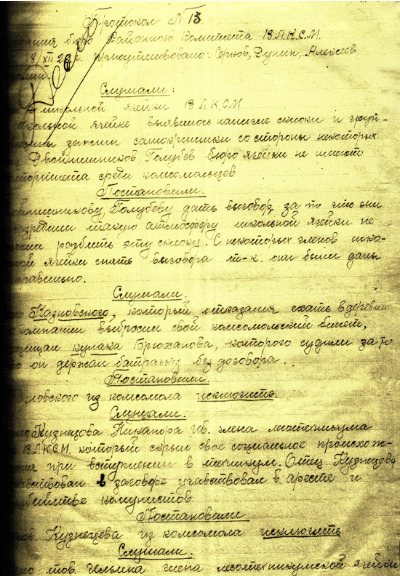 Протокол N 13
бюро Районного Комитета В.Л.К.С.М.
18/XII 28г. присутствовало: Дукин, Алексеев
Слушали:
школьной ячейки В.Л.К.С.М
школьной ячейке выявлено наличие склоки и
зажим самокритики со стороны некоторых
Голубев бюро ячейки не имеют
авторитета среди комсомольцев
Постановили.
Голубеву дать выговор за то что они
такую атмосферу школьной ячейки не
эту склоку. С некоторых членов
ячейки снять выговора т-к. они были даны
неправильно.
Слушали.
Казновского, который отказался ехать в деревню
компании выбросил свой комсомольский билет,
кулака Брюханова, которого судили за то
что он держал батрачку без договора.
Постановили.
из комсомола исключить.
Слушали.
Кузнецова Никанора Ив. члена лесотехникума
В.Л.К.С.М. который скрыл свое социальное происхож-
при вступлении в техникум. Отец Кузнецова
в заговоре участвовал в аресте и
убийстве комунистов.
Постановили
Кузнецова из комсомола исключить
Слушали.
тов. Ильина члена лесотехникумской ячейки